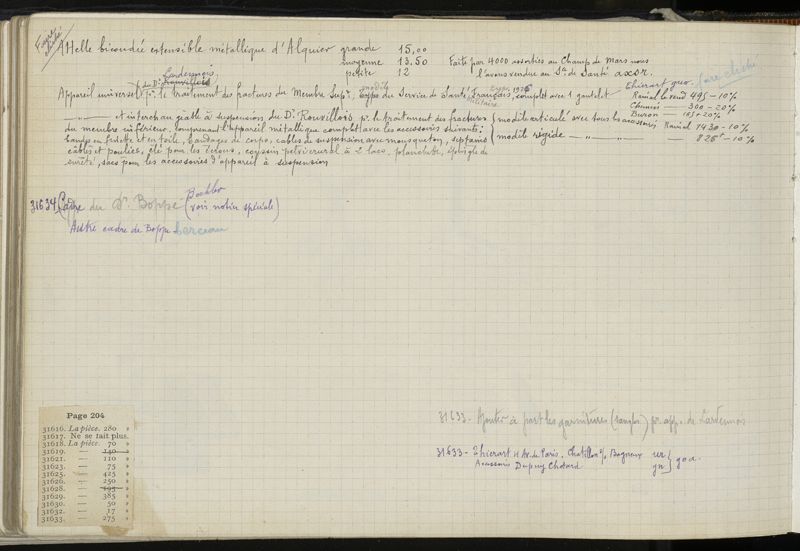 Attelle bicoudée extensible métallique d'Alquier grande 15,00
moyenne 13,50 Faite par 4000 assorties au Champ de Mars nous
petite 12 l'avons vendue au Sce de Santé axor.
Lardennois
Appareil universel du Dr Rouvillois pr. le traitement des fractures du Membre Supr. Type du Service de Santé Français, complet avec 1 gantelet
Thierart
Rainal le vend 495 - 10%
300 - 20%
185 + 20%
Rainal 1430 - 10%
828 - 10%
et interchangeable à suspension du Dr Rouvillois pr. le traitement des fractures
du membre inférieur, comprenant l'appareil métallique complet avec les accessoires suivants:
modèle articulé avec tous les accessoires
modèle rigide
bandes en flanelle et en toile, bandages de corps, câbles de suspension avec mousqueton,
câbles et poulies, clé pour les écrous, coussin pelvi-crural à 2 lacs, planchette, épingles de
sûreté, sacs pour les accessoires d'appareil à suspension
31634 Cadre du Dr. Boppe (voir notice spéciale)
Autre cadre de Boppe berceau
31633 - Ajouter à part les garnitures pr app. de Lardennois
31633 - Thierart Av. de Paris. Chatillon s/ Bagneux
Dupuy Chotard
Page 204
31616. La pièce. 280 »
31617. Ne se fait plus.
31618. La pièce. 70 »
31619. — 140 »
31621. — 110 »
31623. — 75 »
31625. — 425 »
31626. — 250 »
31628. — 195 »
31629. — 385 »
31630. — 50 »
31632. — 17 »
31633. — 275 »